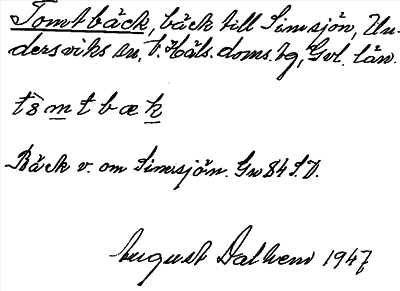 Tomtbäck, bäck till Simsjön, Un-
dersviks sn, N. Häls. doms. bg, Gvl. län.
tòmtbæk
Bäck v. om Simsjön. Gw 84 S.D.
August Dalhem 1947